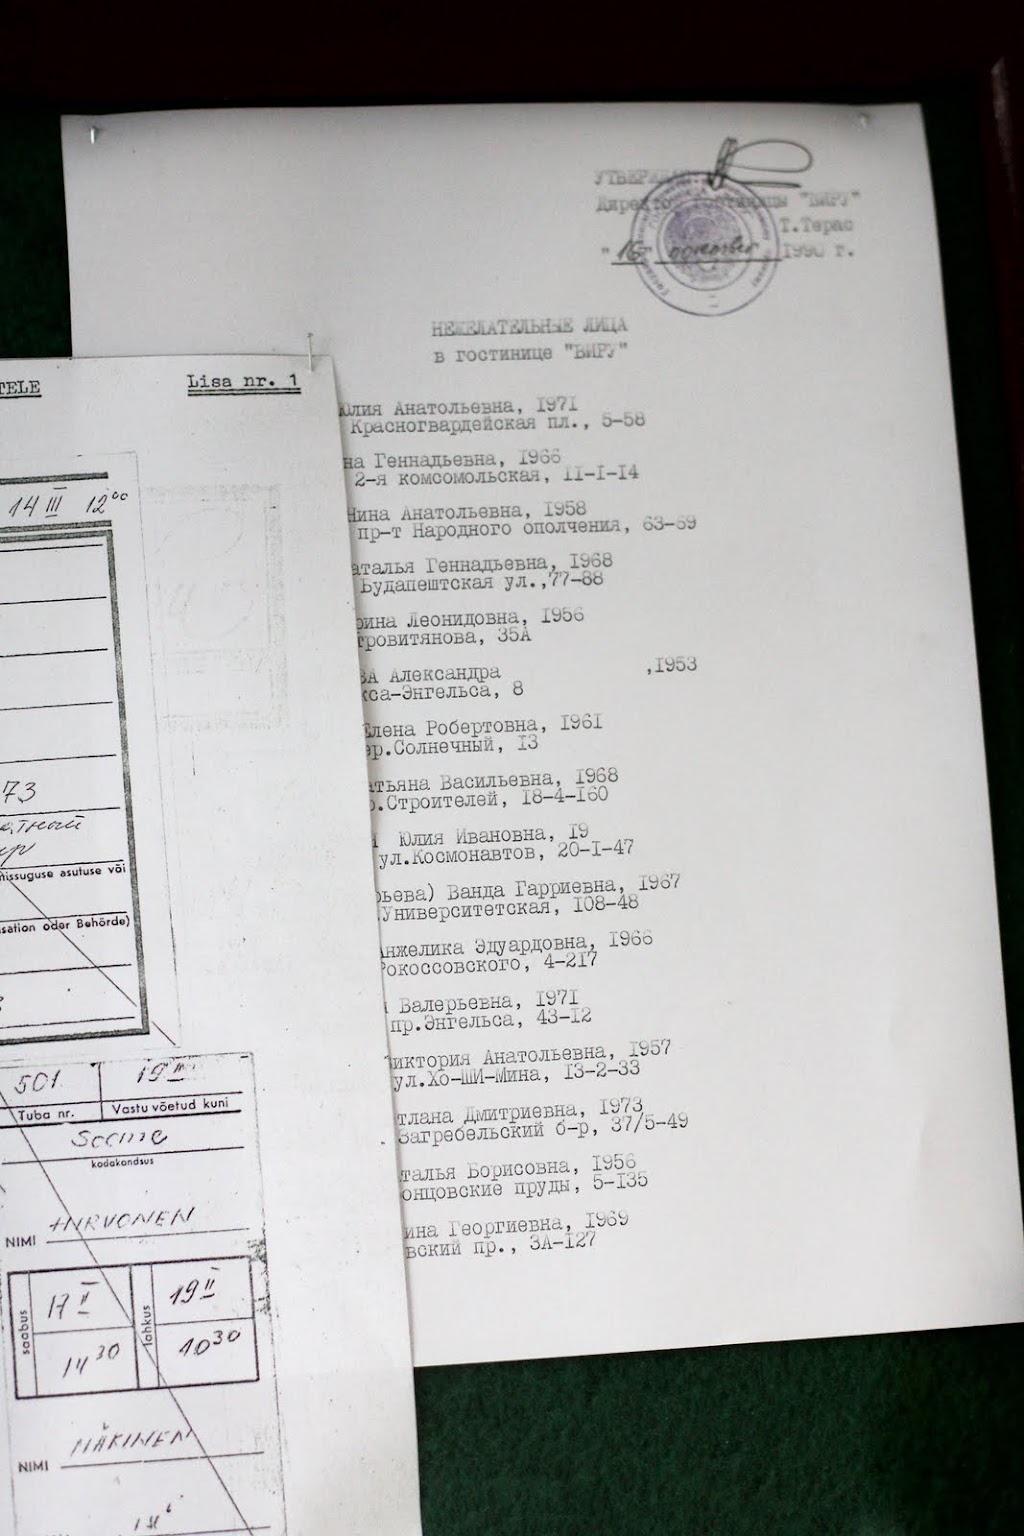 УТВЕРЖДАЮ:
Директор гостиницы "ВИРУ"
Т.Терас
"16" 1990 г.
НЕЖЕЛАТЕЛЬНЫЕ ЛИЦА
в гостинице "ВИРУ"
Юлия Анатольевна, 1971
Красногвардейская пл., 5-58
на Геннадьевна, 1966
2-я комсомольская, 11-1-14
Нина Анатольевна, 1958
пр-т Народного ополчения, 63-59
аталья Геннадьевна, 1968
Будапештская ул.,77-88
рина Леонидовна, 1956
тровитянова, 35А
ВА Александра ,1953
кса-Энгельса, 8
Елена Робертовна, 1961
ер.Солнечный, 13
атьяна Васильевна, 1968
р.Строителей, 18-4-160
Юлия Ивановна, 19
ул.Космонавтов, 20-1-47
рьева) Ванда Гарриевна, 1967
Университетская, 108-48
Анжелика Эдуардовна, 1966
Рокоссовского, 4-217
Валерьевна, 1971
пр.Энгельса, 43-12
Виктория Анатольевна, 1957
ул.Хо-ШИ-Мина, 13-2-33
тлана Дмитриевна, 1973
. Загребельский б-р, 37/5-49
талья Борисовна, 1956
онцовские пруды, 5-135
ина Георгиевна, 1969
вский пр., 3А-127
TELE
Lisa nr. 1
14 III 12⁰⁰
73
missuguse asutuse või
sation oder Behörde)
501 19 III
Tuba nr. Vastu võetud kuni
Soome
kodakondsus
NIMI HIRVONEN
saabus 17 II lahkus 19 II
14 30 10 30
NIMI MÄKINEN